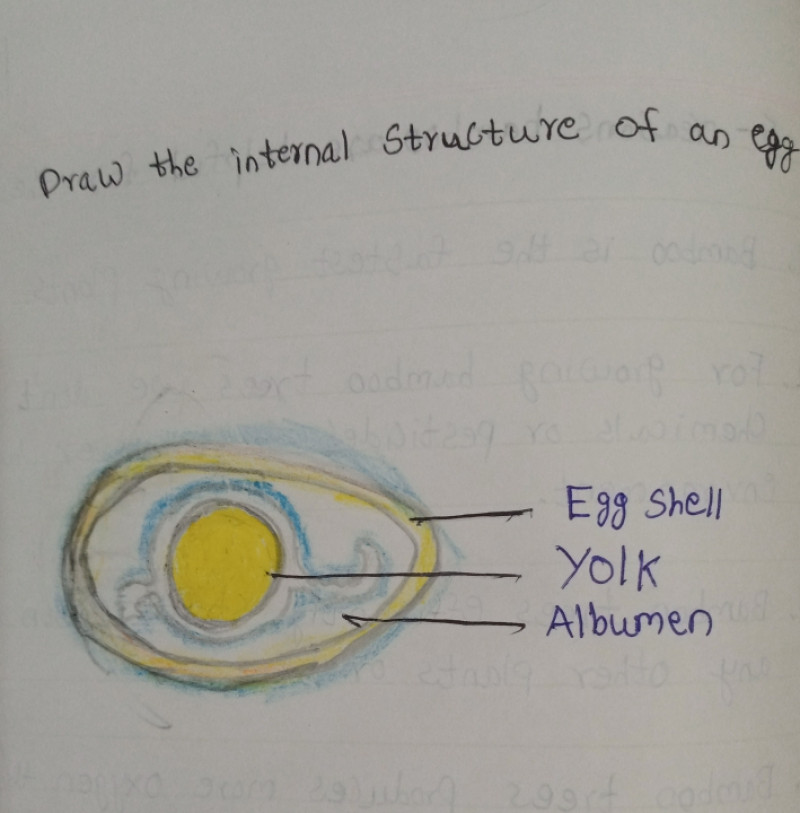 Draw the internal Structure of an egg
Egg Shell
Yolk
Albumen